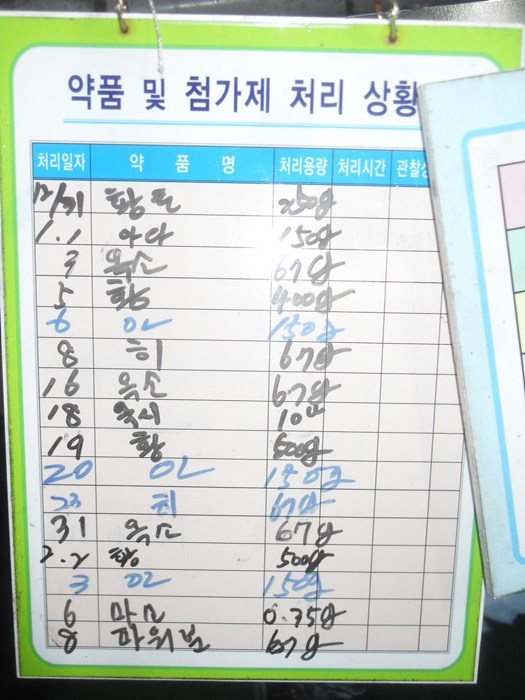 약품 및 첨가제 처리 상황
처리일자 약 품 명 처리용량 처리시간 관찰상
12/31 황토 250g
1.1 아다 150g
3 옥소 67g
5 황 400g
6 150g
8 히 67g
16 옥소 67g
18 옥시 10
19 황 500g
20 150g
23 히 67g
31 옥소 67g
2.2 황 500g
3 150g
6 마조 0.35g
8 파워 67g